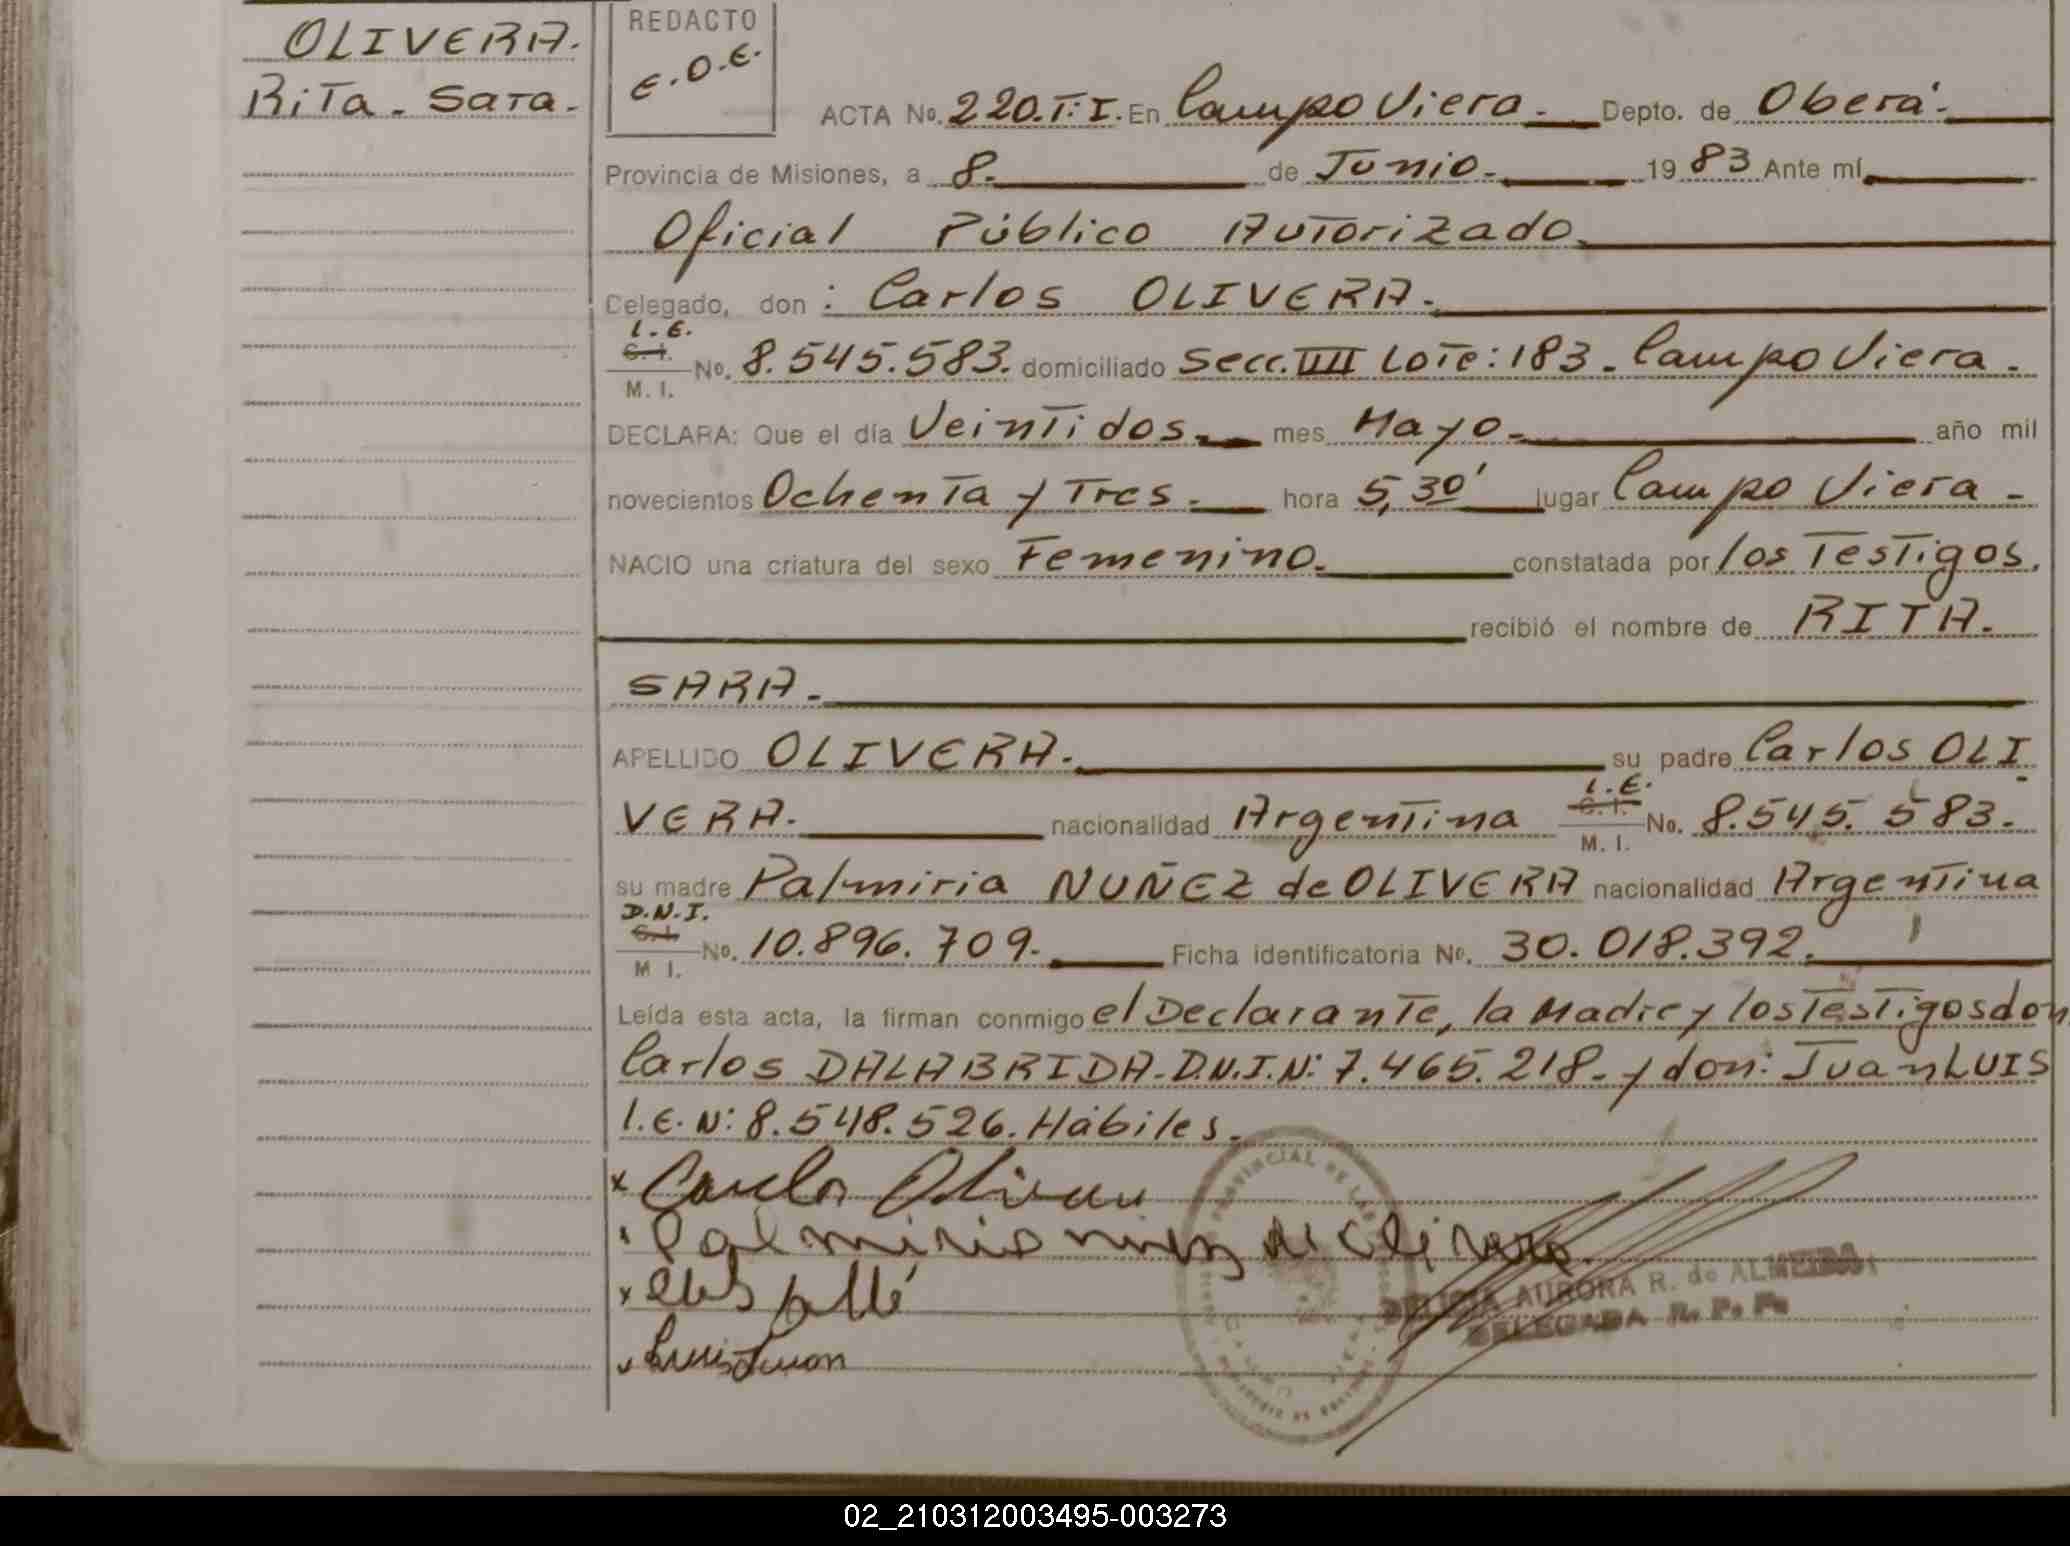 OLIVERA.
Rita - Sara.
REDACTO
E.O.E.
ACTA No. 220.T:I. En Campo Viera. Depto. de Oberá.
Provincia de Misiones, a 8. de Junio. 1983 Ante mí,
Oficial Público Autorizado.
Delegado, don : Carlos OLIVERA.
L.E.
C.I.
M.I. No. 8.545.583. domiciliado Secc. IIII Lote: 183. Campo Viera.
DECLARA: Que el día Veintidos. mes Mayo. año mil
novecientos Ochenta y Tres. hora 5,30' lugar Campo Viera.
NACIO una criatura del sexo Femenino. constatada por los Testigos.
recibió el nombre de RITA.
SARA.
APELLIDO OLIVERA. su padre Carlos OLI
L.E.
VERA. nacionalidad Argentina C.I. No. 8.545.583.
M.I.
su madre Palmiria NUÑEZ de OLIVERA nacionalidad Argentina
D.N.I.
C.I. No. 10.896.709. Ficha identificatoria No. 30.018.392.
M I.
Leída esta acta, la firman conmigo el Declarante, la Madre y los Testigos don
Carlos DALABRIDA-D.N.I.N: 7.465.218. y don: Juan LUIS
L.E.N: 8.548.526. Hábiles.
x Carlos Olivera
Palmiria nuñez de olivera
x
Luis Juan
PROVINCIAL DE LAS
DELICIA AURORA R. de ALMEIDA
DELEGADA R. P. P.
02_210312003495-003273